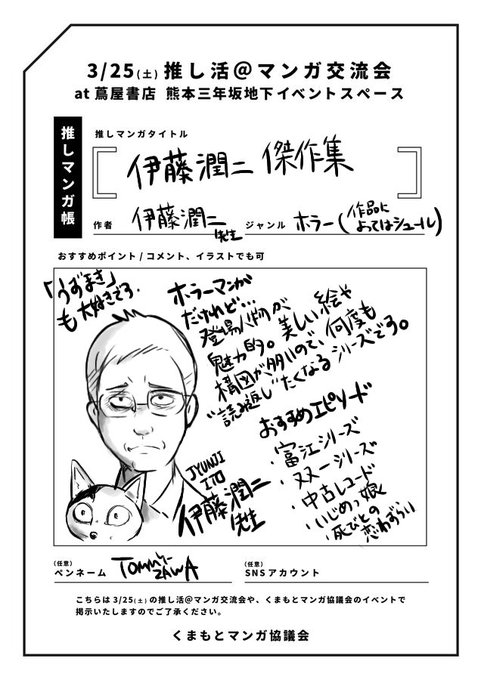 3/25(土)推し活@マンガ交流会
at 蔦屋書店 熊本三年坂地下イベントスペース
推しマンガ帳
推しマンガタイトル
伊藤潤二 傑作集
作者 伊藤潤二先生 ジャンル ホラー(作品によってはシュール)
おすすめポイント / コメント、イラストでも可
「うずまき」
も大好きです。
ホラーマンガ
だけれど…
登場人物が
魅力的。美しい絵や
構図が多いので、何度も
"読み返し"たくなるシリーズです。
おすすめエピソード
・富江シリーズ
・双一シリーズ
・中古レコード
・いじめっ娘
・死びとの
恋わずらい
JYUNJI
ITO
伊藤潤二
先生
(任意)
ペンネーム TommyZAWA
(任意)
SNSアカウント
こちらは 3/25(土) の推し活@マンガ交流会や、くまもとマンガ協議会のイベントで
掲示いたしますのでご了承ください。
くまもとマンガ協議会